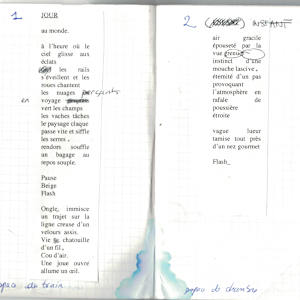 1 JOUR
au monde.
à l'heure où le
ciel glisse aux
éclats
les rails
s'éveillent et les
roues chantent
les nuages perçants
en voyage
vert les champs
les vaches tâches
le paysage claque
passe vite et siffle
les serres,
rendors souffle
un bagage au
repos souple.
Pause
Beige
Flash
Ongle, immisce
un trajet sur la
ligne creuse d'un
velours assis.
Vie se chatouille
d'un fil,
Cou d'air.
Une joue ouvre
allume un œil.
papes du train
2 INSTANT
air gracile
épousseté par la
vue grenue
instinct d'une
mouche lascive,
éternité d'un pas
provoquant
l'atmosphère en
rafale de
poussière
étroite
vague lueur
tamise tout près
d'un nez gourmet
Flash
papes de chambre